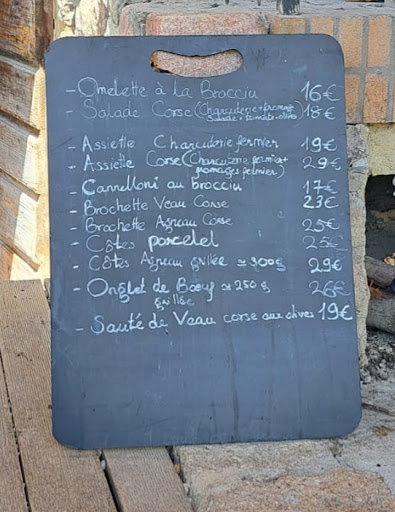 - Omelette à la Brocciu 16€
- Salade Corse (Charcuterie + fromage 18€
Salade + tomate + olives)
- Assiette Charcuterie fermier 19€
- Assiette Corse (Charcuterie fermier + 29€
fromages fermier)
- Cannelloni au brocciu 17€
- Brochette Veau Corse 23€
- Brochette Agneau Corse 25€
- Côtes porcelet 25€
- Côtes Agneau grillée ≃ 300g 29€
- Onglet de Bœuf ≃ 250g 26€
grillée
- Sauté de Veau corse aux olives 19€